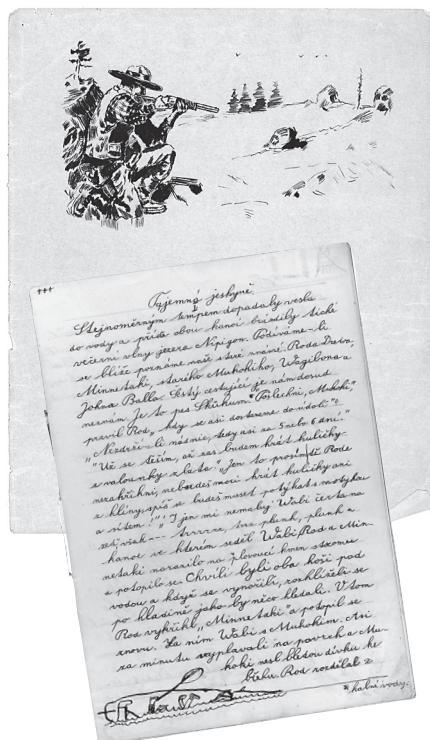 +++
Tajemná jeskyně.
Stejnoměrným tempem dopadaly vesla
do vody a přídě obou kanoí brázdily tiché
večerní vlny jezera Nipigon. Podíváme-li
se blíže poznáme naše staré známé Roda Drewa,
Minnetaki, starého Mukokiho, Wagibona a
Johna Balla. Šestý cestující je nám dosud
neznám. Je to pes Skikum. "Poslechni, Mukoki"
pravil Rod, kdy se asi dostaneme do údolí"?
"Nezdrží-li nás nic, tedy asi za 5 nebo 6 dní."
"Už se těším, až zas budem hrát kuličky
s valounky zlata." "Jen to prosímtě Rode
nezakřikni, nebo budeš moci hrát kuličky ani
z hlíny, spíš se budeš muset potýkat s motykou
a sítem!" "I jen mi nemaluj Wabi čerta na
zeď, však --- trrrrr, tns plunk, plunk a
kanoe ve kterém seděl Wabi, Rod a Min-
netaki narazilo na plovoucí kmen stromu
a potopilo se. Chvíli byli oba hoši pod
vodou a když se vynořili, rozhlíželi se
po hladině jako by něco hledali. V tom
Rod vykřikl "Minnetaki" a potopil se
znovu. Za ním Wabi s Mukokim. Asi
za minutu vyplavali na povrch a Mu-
koki nesl bledou dívku ke
břehu. Rod rozdělal z
* kalné vody.